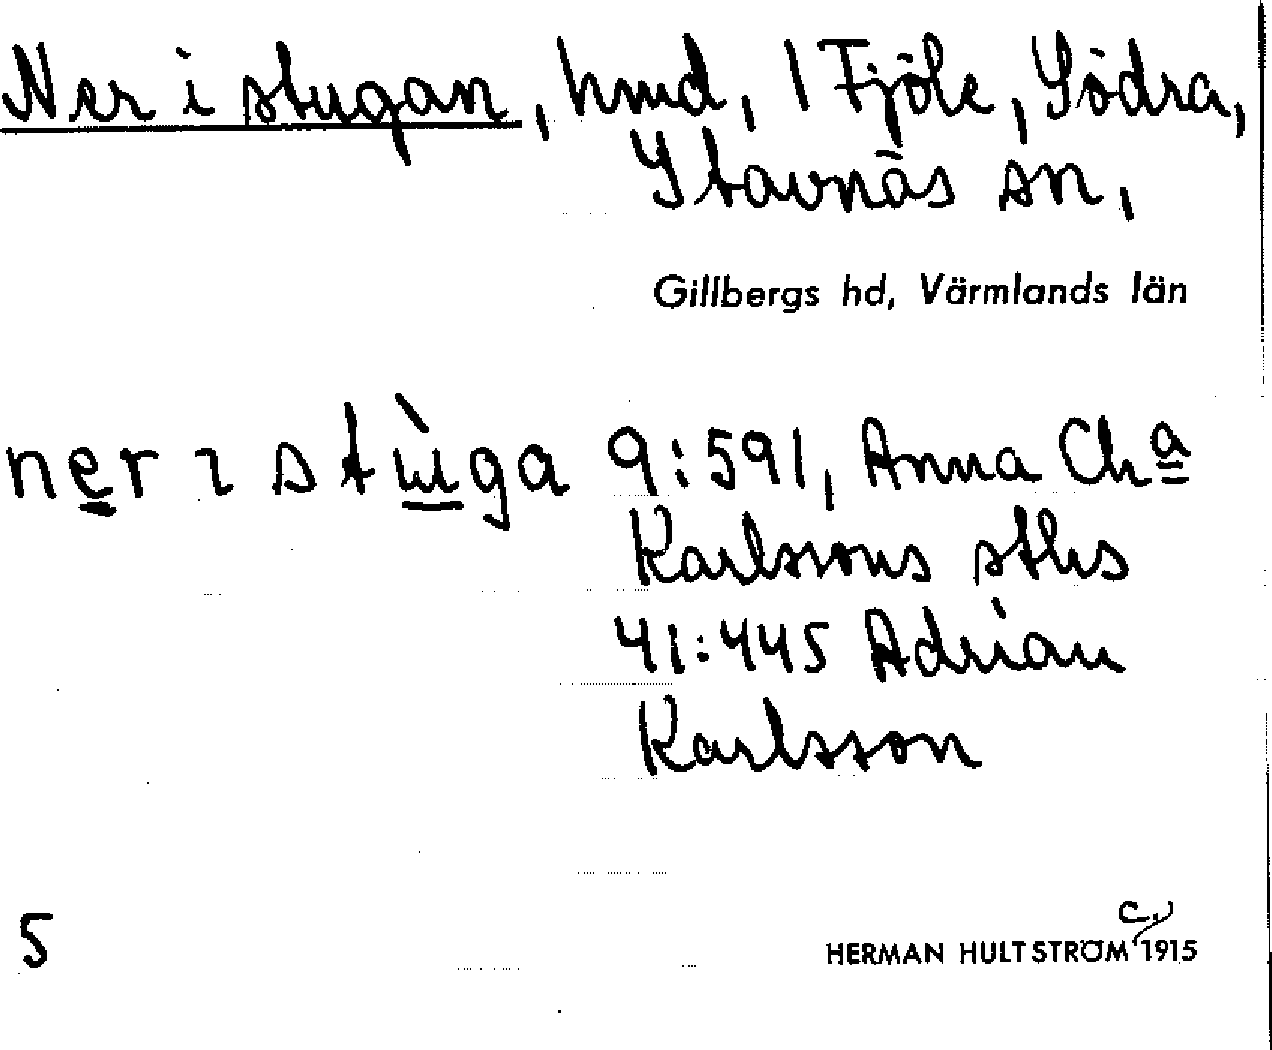 Ner i stugan, hmd, 1 Fjöle, Södra,
Stavnäs sn,
Gillbergs hd, Värmlands län
ner ɩ stùga 9:591, Anna Ch a
Karlssons sths
41:445 Adrian
Karlsson
5
c.
HERMAN HULTSTRÖM 1915